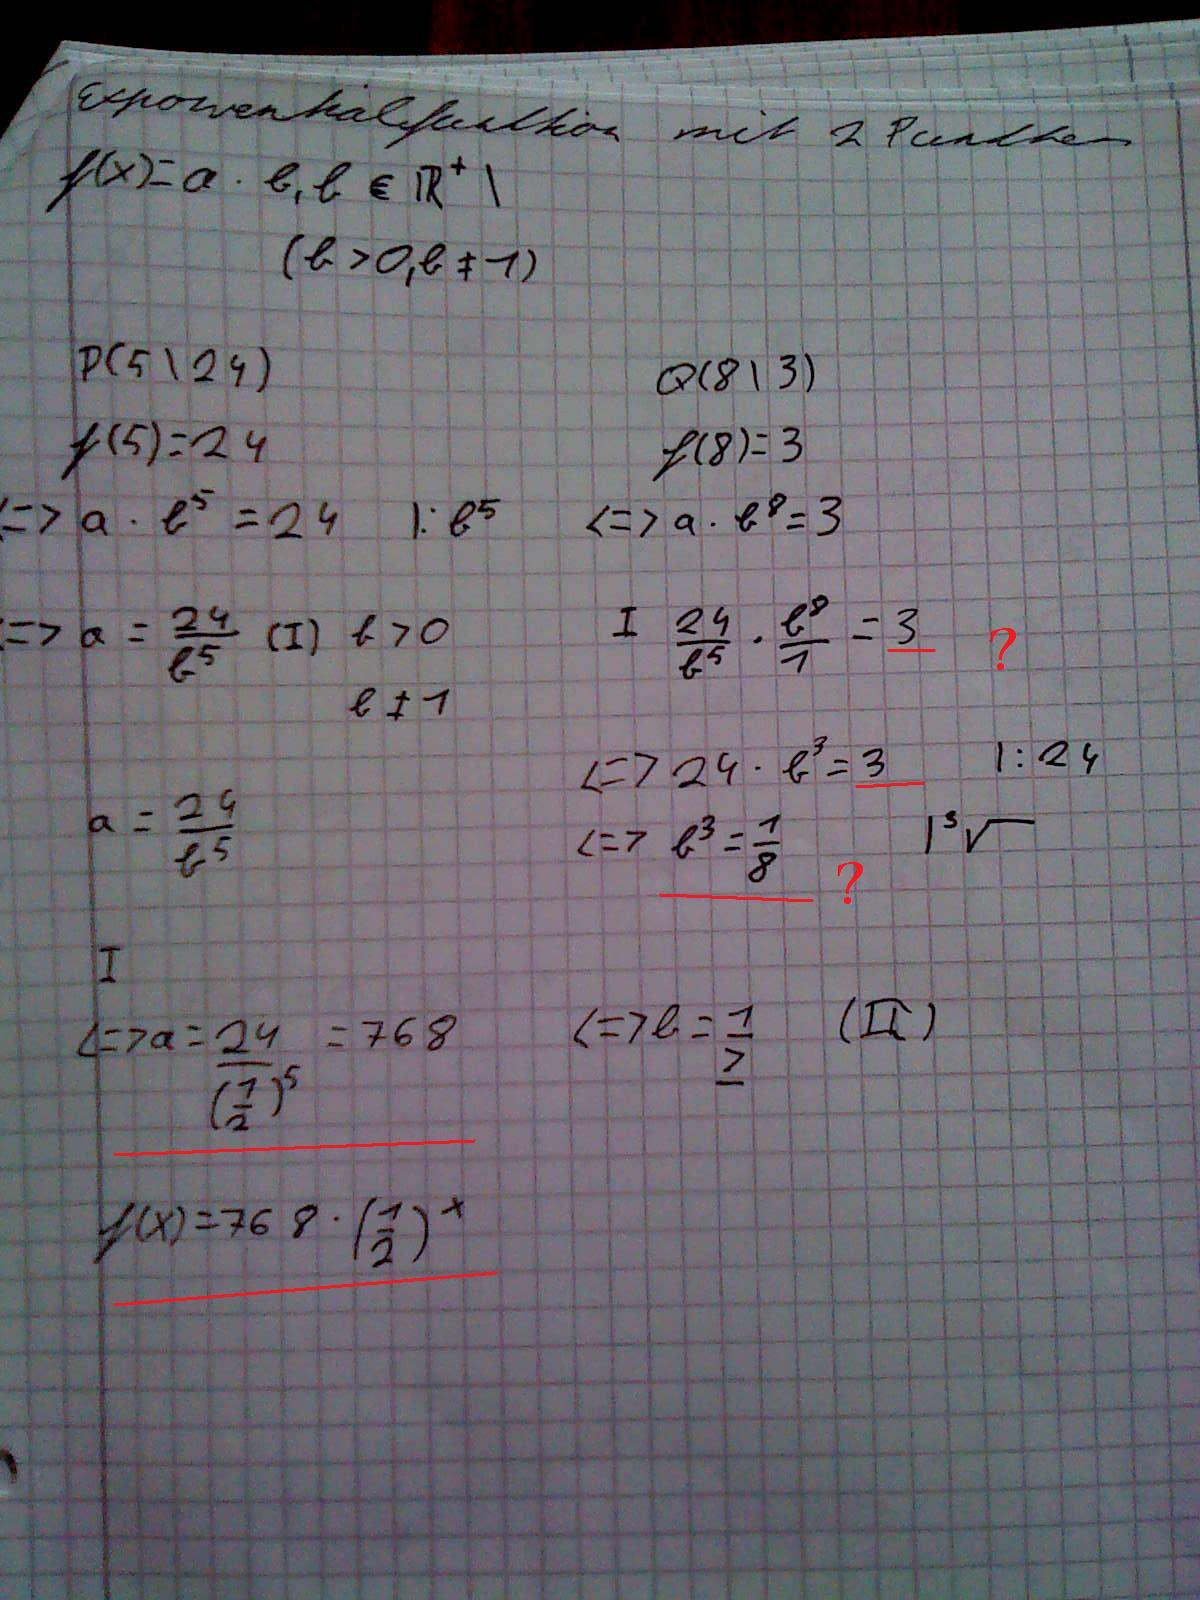 Exponentialfunktion mit 2 Punkten
f(x)=a · b, b ∈ ℝ⁺ \
(b>0, b≠1)
P(5\24)
Q(8\3)
f(5)=24
f(8)=3
<=> a · b⁵ = 24 |: b⁵
<=> a · b⁸ = 3
<=> a = 24/b⁵ (I) b>0
b≠1
I 24/b⁵ · b⁸/1 = 3 ?
<=> 24 · b³ = 3 |: 24
a = 24/b⁵
<=> b³ = 1/8 | ³√
?
I
<=> a = 24/(1/2)⁵ = 768
<=> b = 1/2 (II)
f(x) = 768 · (1/2)ˣ